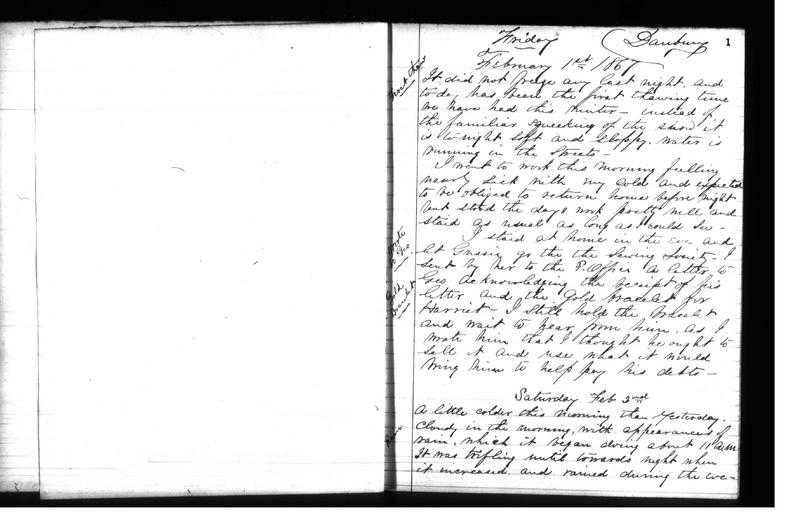 Friday Danbury 1
February 1st 1867
It did not freeze any last night, and
to day has been the first thawing time
we have had this winter— instead of
the familiar squeaking of the snow it
is to night soft and sloppy. water is
running in the Streets—
I went to work this morning feeling
nearly sick with my cold and expected
to be obliged to return home before night
but stood the days work pretty well and
staid as usual as long as I could see—
I staid at home in the eve and
let Gussie go the the Sewing Society— I
sent by her to the P. Office a letter to
Geo acknowledging the receipt of his
letter and the Gold bracelet for
Harriet— I still hold the bracelet
and wait to hear from him, as I
wrote him that I thought he ought to
sell it and use what it would
bring him to help pay his debts—
Wrote
to Geo.
Gold
Bracelet
Saturday Feb 2nd
A little colder this morning than yesterday.
Cloudy in the morning, with appearances of
rain, which it began doing about 11 a.m.
It was trifling until towards night when
it increased and rained during the eve—
Rain